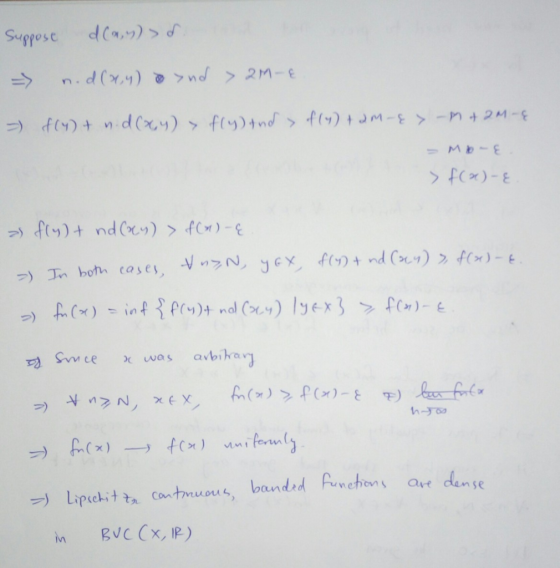 Suppose d(x,y) > δ
⇒ n.d(x,y) > nδ > 2M-ε
⇒ f(y) + n.d(x,y) > f(y)+nδ > f(y)+2M-ε > -M+2M-ε
= M-ε.
> f(x)-ε.
⇒ f(y) + nd(x,y) > f(x)-ε.
⇒ In both cases, ∀ n≥N, y∈X, f(y)+nd(x,y) ≥ f(x)-ε.
⇒ fn(x) = inf {f(y)+nd(x,y) | y∈X} ≥ f(x)-ε.
Since x was arbitrary
⇒ ∀ n≥N, x∈X, fn(x) ≥ f(x)-ε ⇒) lim fn(x
n→∞
⇒ fn(x) → f(x) uniformly.
⇒ Lipschitz continuous, banded functions are dense
in BUC(X,IR)